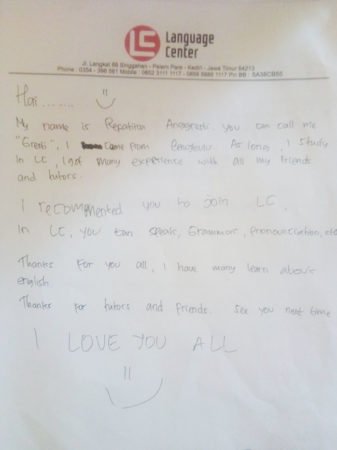 LC Language
Center
Jl. Langkat 66 Singgahan - Pelem Pare - Kediri - Jawa Timur 64213
Phone : 0354 - 396 561 Mobile : 0852 3111 1117 - 0856 5566 1117 Pin BB :
Hai ........
My name is Anggraeti. you can call me
I came from As long, I study
in LC, I got many experience with all my friends
and tutors.
I recommented you to join LC,
In LC, you can speak, Grammar, Pronounciation, etc
Thanks For you all, I have many learn above
english
Thanks For tutors and friends. See you next time
I LOVE YOU ALL